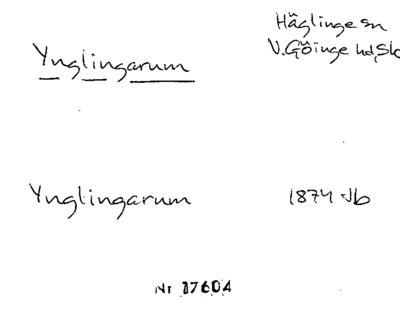 Häglinge sn
Ynglingarum
V. Göinge hd, Sk
Ynglingarum
1874 Jb
Nr 17604